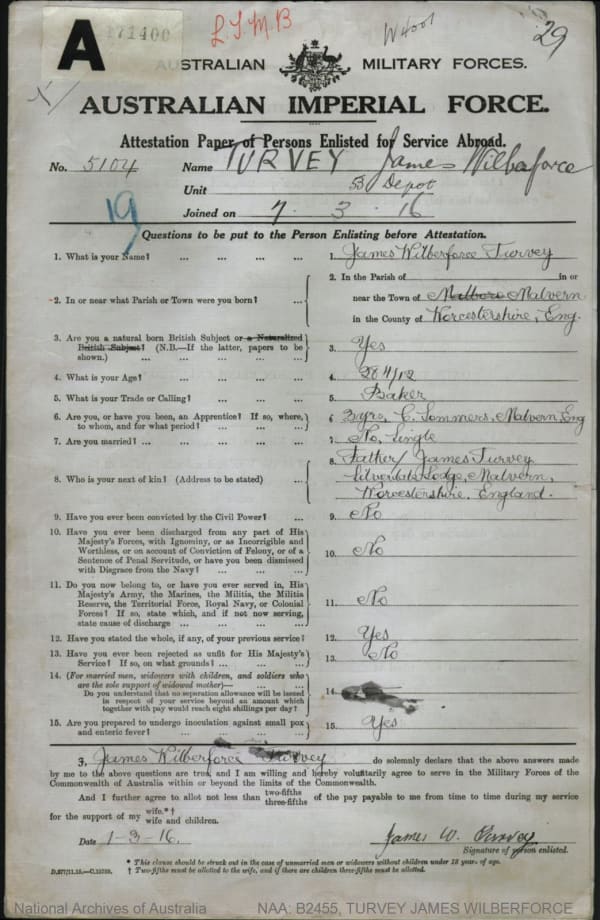 A
171400
L.T.M.B
29
AUSTRALIAN MILITARY FORCES.
AUSTRALIAN IMPERIAL FORCE.
Attestation Paper of Persons Enlisted for Service Abroad.
No. 5104 Name TURVEY James Wilberforce
Unit Depot
Joined on 7 . 3 . 16
19
Questions to be put to the Person Enlisting before Attestation.
1. What is your Name? ... ... ... ... 1. James Wilberforce Turvey
2. In or near what Parish or Town were you born? ... 2. In the Parish of in or
near the Town of Malvern
in the County of Worcestershire, Eng.
3. Are you a natural born British Subject or a Naturalized
British Subject? (N.B.—If the latter, papers to be
shown.) ... ... ... ... ... 3. Yes
4. What is your Age? ... ... ... ... 4. 28 4/12
5. What is your Trade or Calling? ... ... ... 5. Baker
6. Are you, or have you been, an Apprentice? If so, where,
to whom, and for what period? ... ... ... 6 3yrs, C. Sommers, Malvern, Eng
7. Are you married? ... ... ... ... ... 7. No, Single
8. Who is your next of kin? (Address to be stated) ... 8. Father/ James Turvey
Silverdale Lodge, Malvern,
Worcestershire. England.
9. Have you ever been convicted by the Civil Power? ... 9. No
10. Have you ever been discharged from any part of His
Majesty's Forces, with Ignominy, or as Incorrigible and
Worthless, or on account of Conviction of Felony, or of a
Sentence of Penal Servitude, or have you been dismissed
with Disgrace from the Navy? ... ... ... 10. No
11. Do you now belong to, or have you ever served in, His
Majesty's Army, the Marines, the Militia, the Militia
Reserve, the Territorial Force, Royal Navy, or Colonial
Forces? If so, state which, and if not now serving,
state cause of discharge ... ... ... ... 11. No
12. Have you stated the whole, if any, of your previous service? 12. Yes
13. Have you ever been rejected as unfit for His Majesty's
Service? If so, on what grounds? ... ... ... 13. No
14. (For married men, widowers with children, and soldiers who
are the sole support of widowed mother)— ... ...
Do you understand that no separation allowance will be issued
in respect of your service beyond an amount which
together with pay would reach eight shillings per day? 14.
15. Are you prepared to undergo inoculation against small pox
and enteric fever? ... ... ... ... 15. Yes
I, James Wilberforce Turvey do solemnly declare that the above answers made
by me to the above questions are true, and I am willing and hereby voluntarily agree to serve in the Military Forces of the
Commonwealth of Australia within or beyond the limits of the Commonwealth.
And I further agree to allot not less than two-fifths three-fifths of the pay payable to me from time to time during my service
for the support of my wife.*† wife and children.
Date 1-3-16. James W. Turvey
Signature of person enlisted.
* This clause should be struck out in the case of unmarried men or widowers without children under 18 years of age.
† Two-fifths must be allotted to the wife, and if there are children three-fifths must be allotted.
National Archives of Australia NAA: B2455, TURVEY JAMES WILBERFORCE